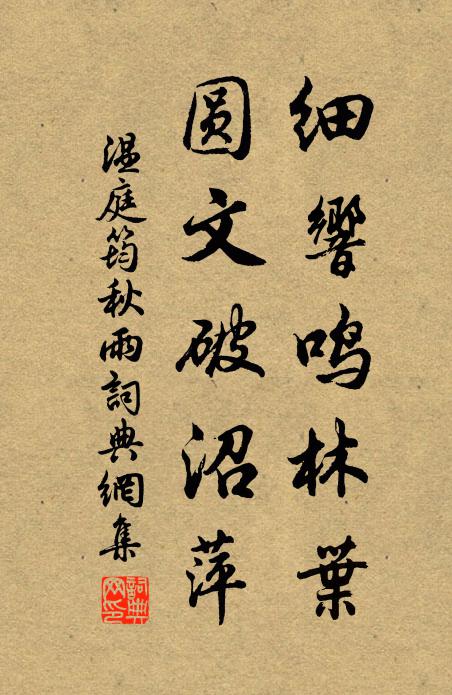 细響鸣林葉
圆文破沼萍
温庭筠秋雨詞典網集
詞典
网印